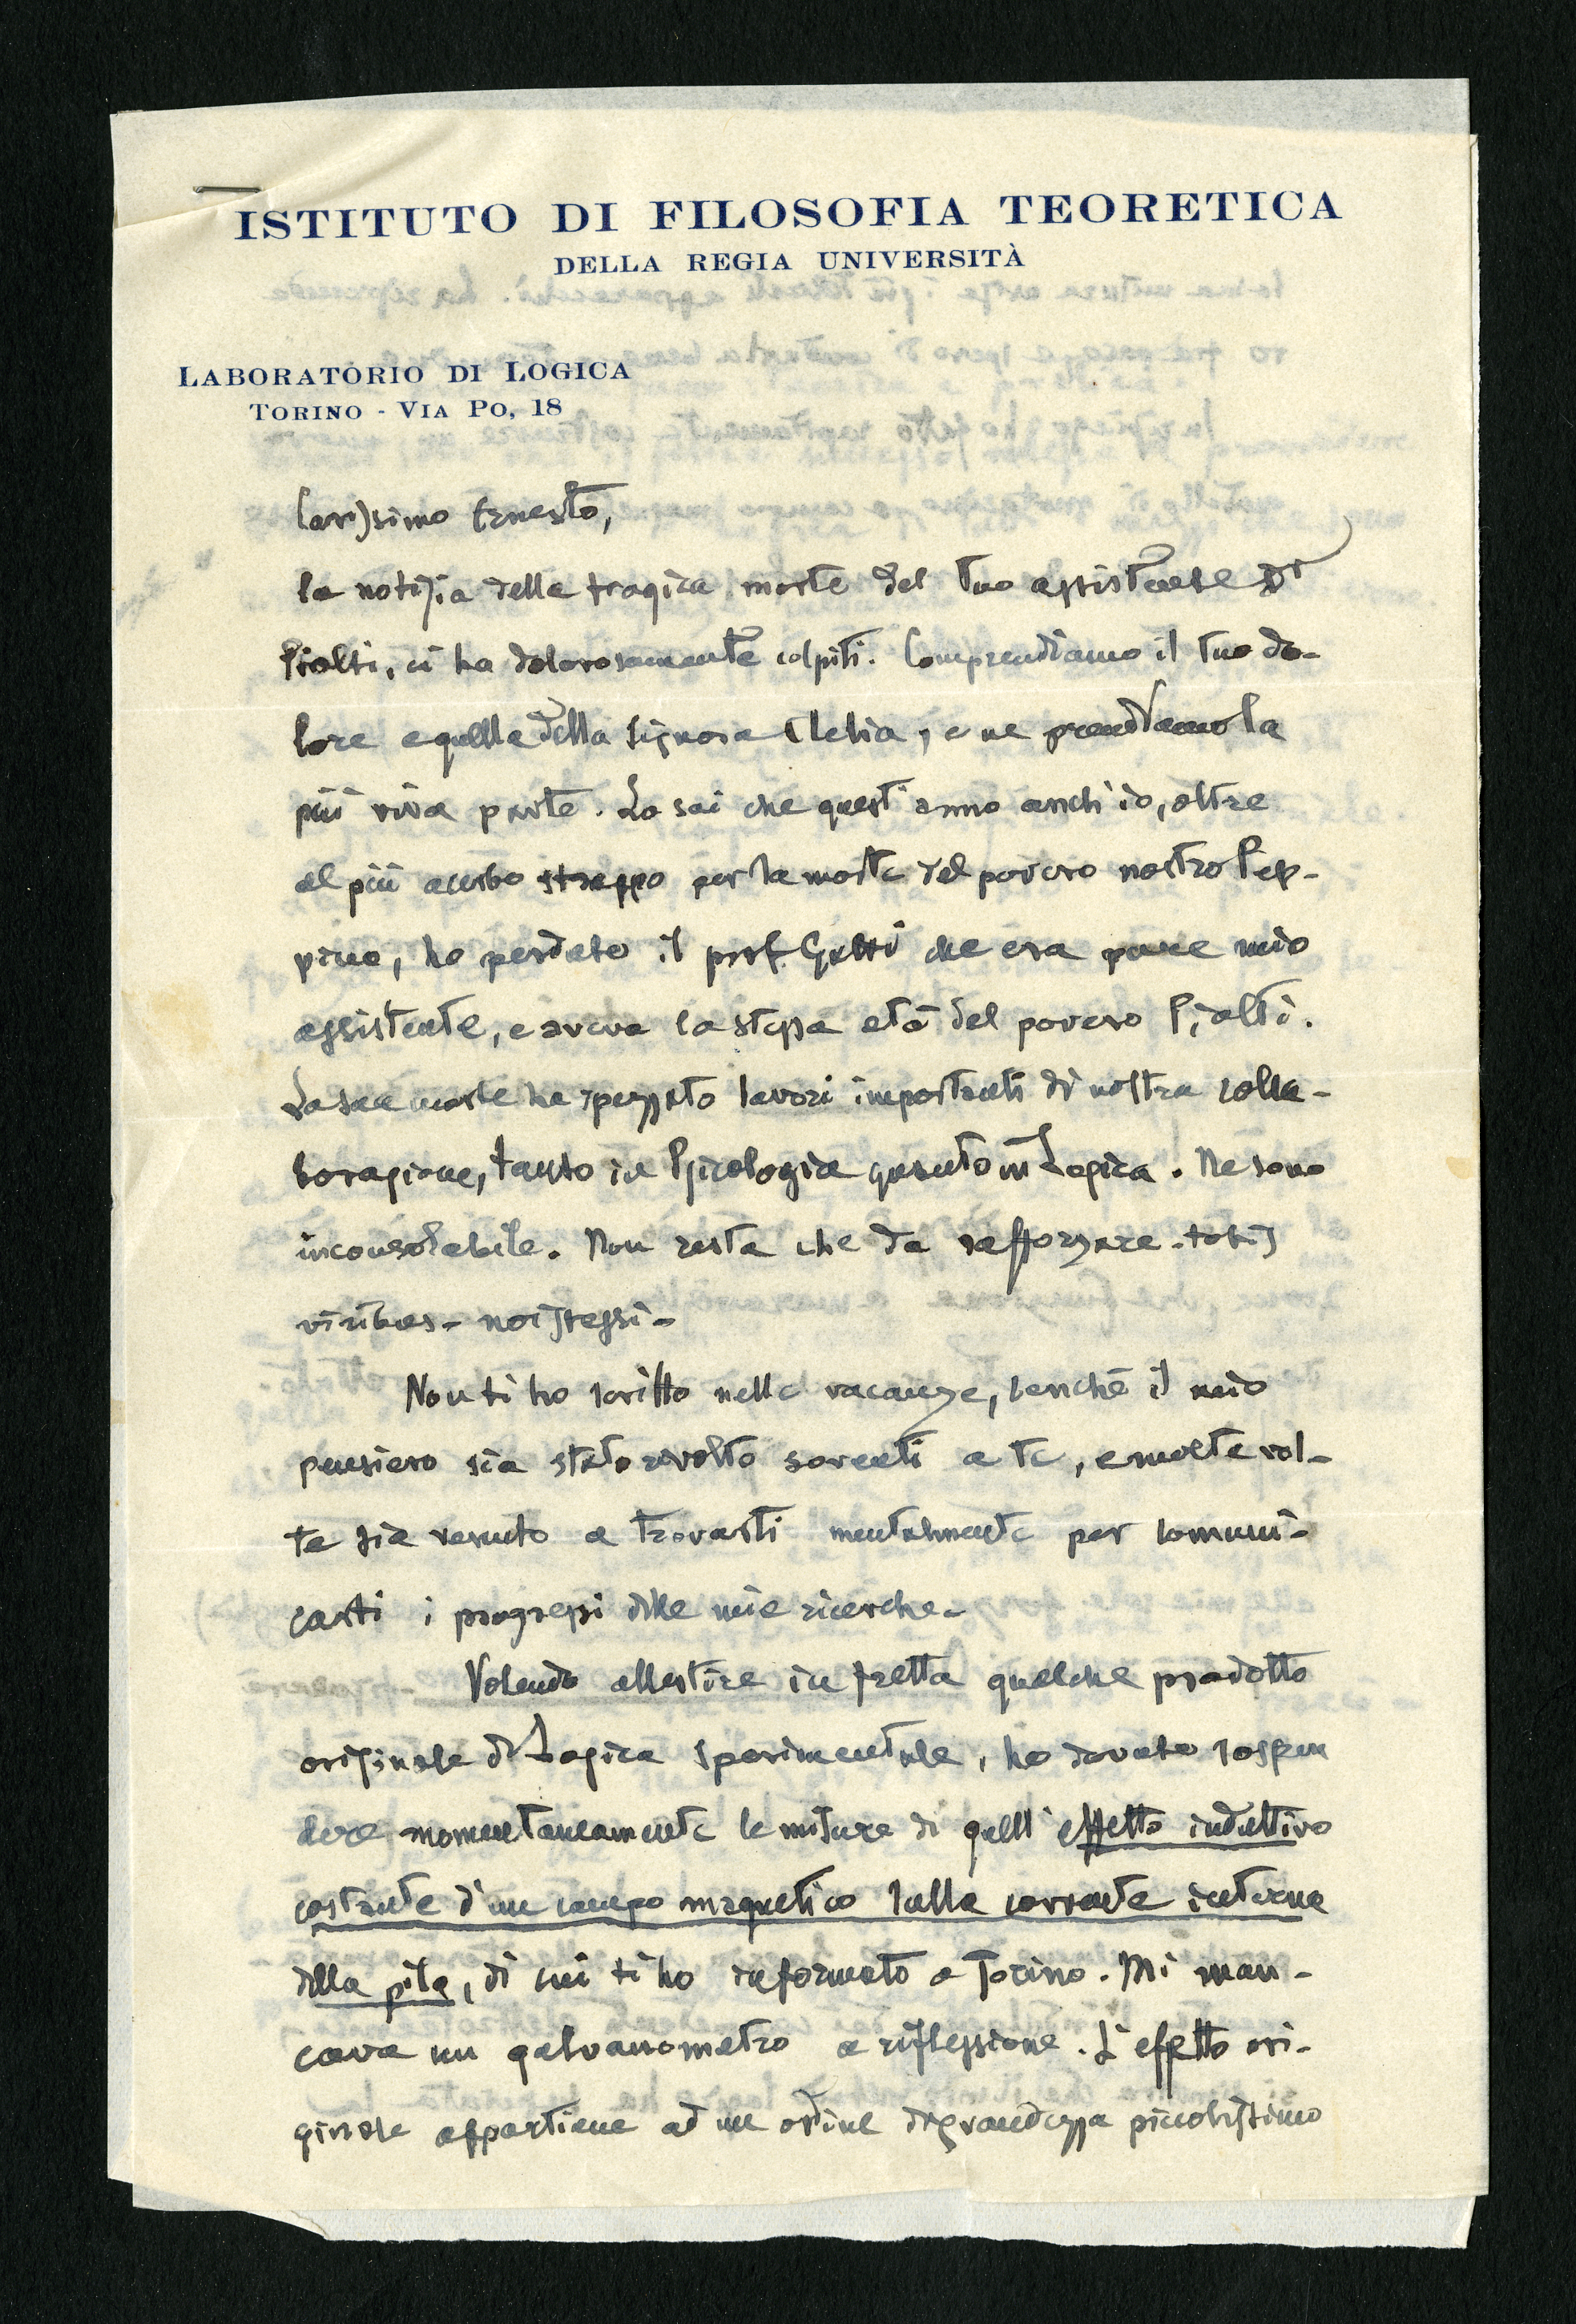 ISTITUTO DI FILOSOFIA TEORETICA
DELLA REGIA UNIVERSITÀ
LABORATORIO DI LOGICA
TORINO - VIA PO, 18
Carissimo Ernesto,
la notizia della tragica morte del tuo assistente Dr
Piolti, ci ha dolorosamente colpiti. Comprendiamo il tuo do-
lore e quello della Signora Clelia, e ne prendiamo la
più viva parte. Lo sai che quest'anno anch'io, oltre
al più acerbo strappo per la morte del povero nostro Pep-
pino, ho perduto il prof. Gatti che era pure mio
assistente, e aveva la stessa età del povero Piolti.
La sua morte ha spezzato lavori importanti di nostra colla-
borazione, tanto in Psicologia quanto in Logica. Ne sono
inconsolabile. Non resta che da rafforzare - totis
viribus - noi stessi -
Non ti ho scritto nelle vacanze, benchè il mio
pensiero sia stato rivolto soventi a te, e molte vol-
te sia venuto a trovarti mentalmente per comuni-
carti i progressi delle mie ricerche -
Volendo allestire in fretta qualche prodotto
originale di Logica sperimentale, ho dovuto sospen
dere momentaneamente le misure di quell'effetto induttivo
costante d'un campo magnetico sulla corrente interna
della pila, di cui ti ho informato a Torino. Mi man-
cava un galvanometro a riflessione. L'effetto ori-
ginale appartiene ad un ordine di grandezza piccolissimo